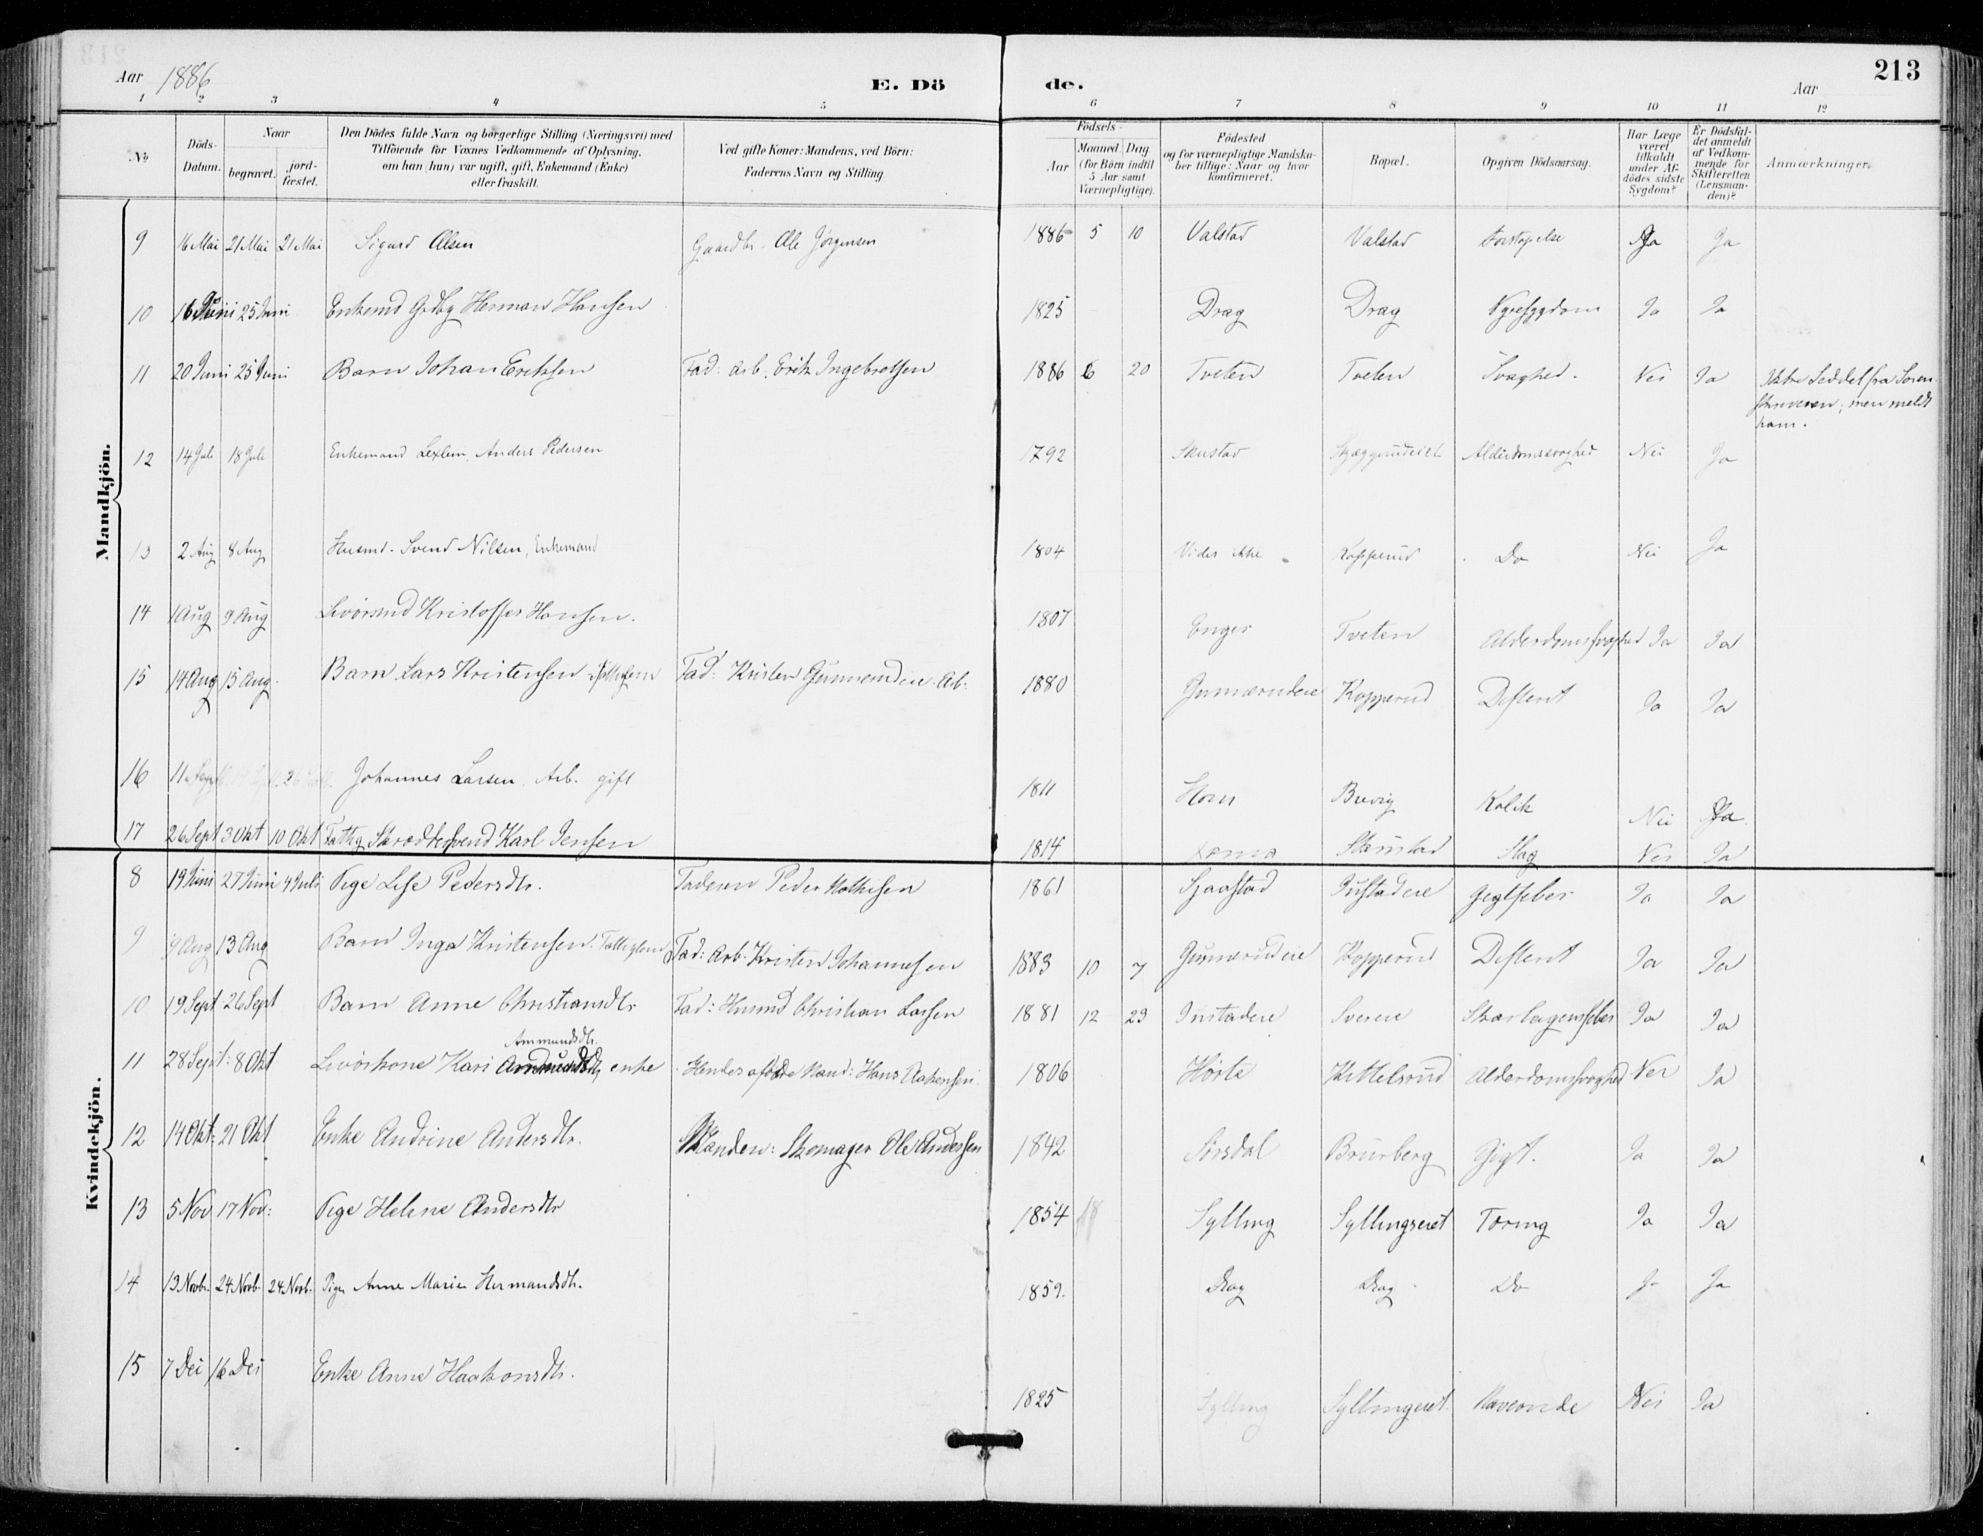 213
Aar 1886
E. Dö de.
Aar
1 2 3 4 5 6 7 8 9 10 11 12
No
Döds-Datum.
Naar
begravet.
jord-fæstet.
Den Dödes fulde Navn og borgerlige Stilling (Næringsvei) med
Tilföiende for Voxnes Vedkommende af Oplysning,
om han (hun) var ugift, gift, Enkemand (Enke)
eller fraskilt.
Ved gifte Koner: Mandens, ved Börn:
Faderens Navn og Stilling
Födsels-
Aar
Maaned Dag
(for Börn indtil
5 Aar samt
Værnepligtige).
Födested
og for værnepligtige Mandska-
ber tillige: Naar og hvor
konfirmeret.
Bopæl.
Opgiven Dödsaarsag.
Har Læge
været
tilkaldt
under Af-
dödes sidste
Sygdom?
Er Dödsfal-
det anmeldt
af Vedkom-
mende for
Skifteretten
(Lensman-
den)?
Anmærkninger.
Mandkjön.
9 16 Mai 21 Mai 21 Mai Sigurd Olsen Gaardbr. Ole Jørgensen 1886 5 10 Valstad Valstad Forstopelse Ja Ja
10 16 Juni 25 Juni Enkemd Grdbg Herman Hansen 1825 Drag Drag Nyresygdom Ja Ja
11 20 Juni 25 Juni Barn Johan Eriksen Fad: Arb. Erik Ingebretsen 1886 6 20 Tveten Tveten Svaghed. Nei Ja Ikke Seddel fra Soren-
skriveren; men meldt
ham.
12 14 Juli 18 Juli Enkemand Anders Pedersen 1792 Skustad Alderdomssvaghed Nei Ja
13 2 Aug 8 Aug Husmd. Svend Nilsen, Enkemand 1804 Vides ikke Kopperud Do Nei Ja
14 1 Aug 9 Aug Levörsmd Kristoffer Hansen. 1807 Enger Tveten Alderdomssvaghed Ja Ja
15 14 Aug 15 Aug. Barn Lars Kristensen Fad: Kristen Arb. 1880 Gunnerudeie Kopperud Difterit Ja Ja
16 11 Sept Johannes Larsen. Arb. gift 1811 Horn Brevig Kolik Nei Ja.
17 26 Sept 3 Okt 10 Okt Fattig Skræddersvend Karl Jensen 1814 Stamstad Slag Nei Ja
Kvindekjön.
8 19 Juni 27 Juni 4 Juli Pige Lise Pedersdtr. Faderen Peder Mathisen 1861 Sjaastad Justadeie Gigtfeber Ja Ja
9 9 Aug 13 Aug Barn Inga Kristensen. Fattiglem Fad: Arb. Kristen Johannesen 1883 10 7 Gunnerudeie Kopperud Difterit Ja Ja
10 19 Sept 26 Sept Barn Anne Christiansdtr Fad: Husmd Christian Larsen 1881 12 29 Justadeie Svereie Skarlagensfeber Ja Ja
Ammundsdtr.
11 28 Sept: 8 Okt Levörkone Kari enke Hendes afdøde Mand: Hans Aakensen. 1806 Hörte Kittelsrud Alderdomssvaghed Nei Ja
12 14 Okt: 21 Okt Enke Andrine Andersdtr. Manden: Skomager Ole Andersen 1842 Sörsdal Brurberg Gigt. Ja Ja
13 5 Nov 17 Nov: Pige Helene Andersdtr 1854 Sylling Syllingseiet Tæring Ja Ja
14 13 Novbr. 24 Novb. 24 Novb. Pige Anne Marie Hermandsdtr. 1859. Drag Drag Do Ja Ja
15 7 Des 16 Des Enke Anne Haakonsdtr. 1825 Sylling Syllingeiet Maveonde Nei Ja